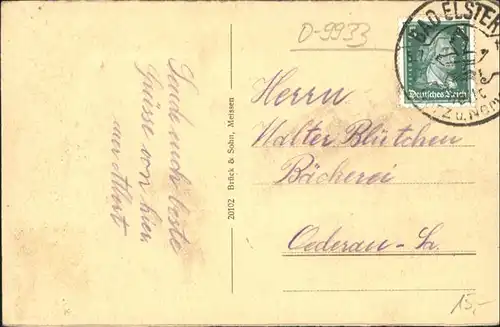 D-9933
BAD ELSTER
Deutsches Reich
Sende euch beste
Grüsse von hier
Albert
20102 Brück & Sohn, Meissen
Herrn
Walter Blütchen
Bäckerei
Oederan - Sa.
15,-